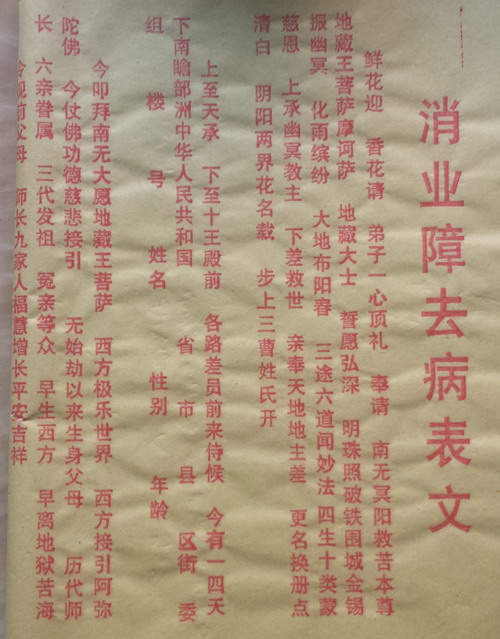 消业障去病表文
鲜花迎 香花请 弟子一心顶礼 奉请 南无冥阳救苦本尊
地藏王菩萨摩诃萨 地藏大士 誓愿弘深 明珠照破铁围城金锡
振幽冥 化雨缤纷 大地布阳春 三途六道闻妙法 四生十类蒙
慈恩 上承幽冥教主 下差救世 亲奉天地地主差 更名换册点
清白 阴阳两界花名载 步上三曹姓氏开
上至天承 下至十王殿前 各路差员前来侍候 今有一四天
下南瞻部洲中华人民共和国 省 市 县 区街 委
组 楼 号 姓名 性别 年龄
今叩拜南无大愿地藏王菩萨 西方极乐世界 西方接引阿弥
陀佛 今仗佛功德慈悲接引 无始劫以来生身父母 历代师
长 六亲眷属 三代发祖 冤亲等众 早生西方 早离地狱苦海
令现前父母 师长九家人福慧增长平安吉祥